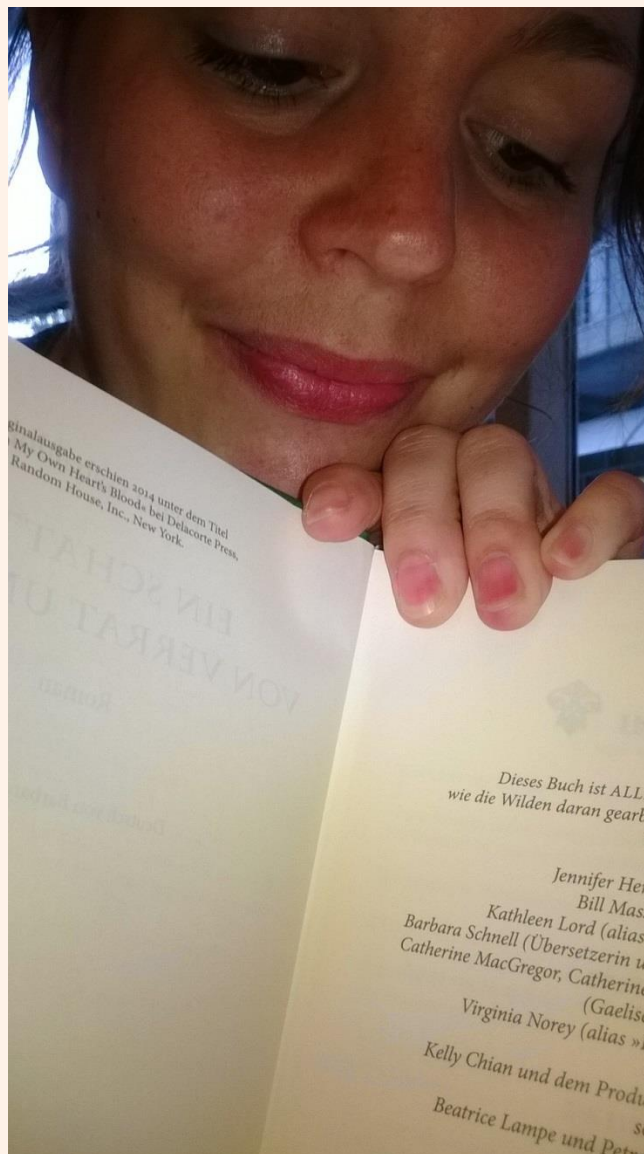 ginalausgabe erschien 2014 unter dem Titel
My Own Heart's Blood« bei Delacorte Press,
Random House, Inc., New York.
EIN SCHAT
VON VERRAT UN
Roman
Dieses Buch ist ALL
wie die Wilden daran gearb
Jennifer He
Bill Mas
Kathleen Lord (alias
Barbara Schnell (Übersetzerin u
Catherine MacGregor, Catherine
(Gaelis
Virginia Norey (alias »
Kelly Chian und dem Produ
Beatrice Lampe und Pet